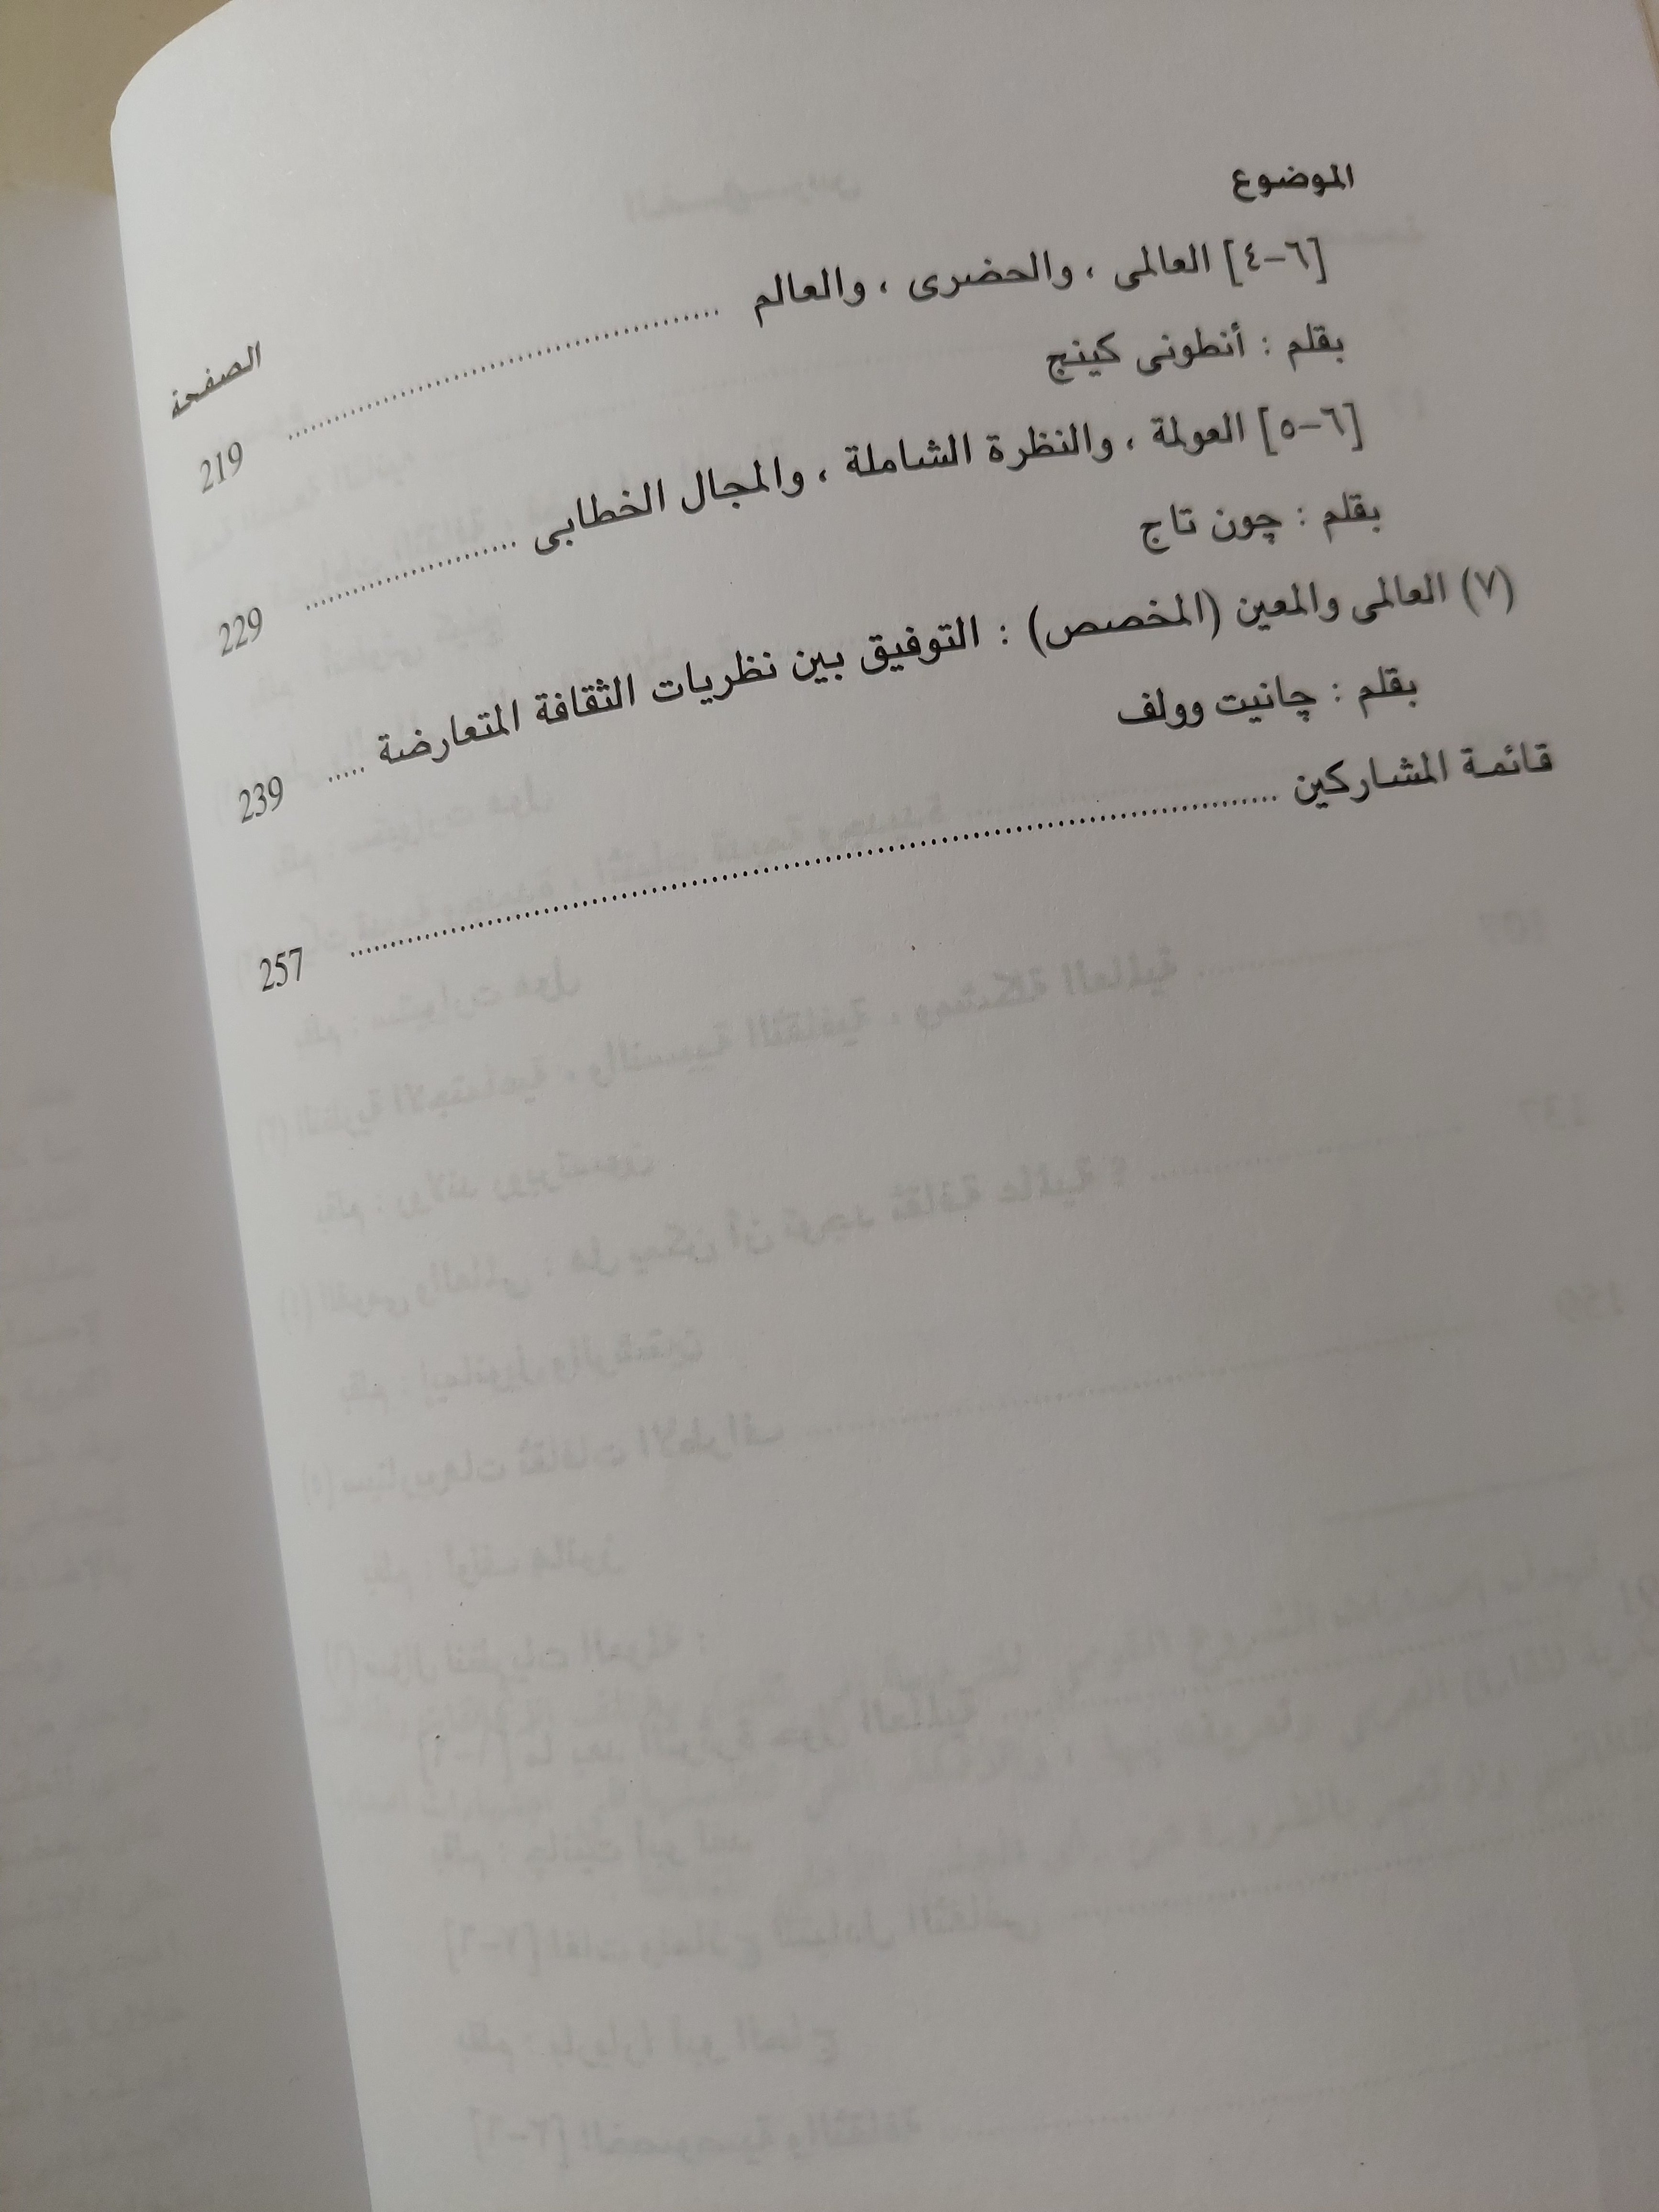 الموضوع
الصفحة
[٦-٤] العالمى ، والحضرى ، والعالم ........ 219
بقلم : أنطونى كينج
[٦-٥] العولمة ، والنظرة الشاملة ، والمجال الخطابى ........ 229
بقلم : چون تاج
(٧) العالمى والمعين (المخصص) : التوفيق بين نظريات الثقافة المتعارضة ..... 239
بقلم : چانيت وولف
قائمة المشاركين ........ 257